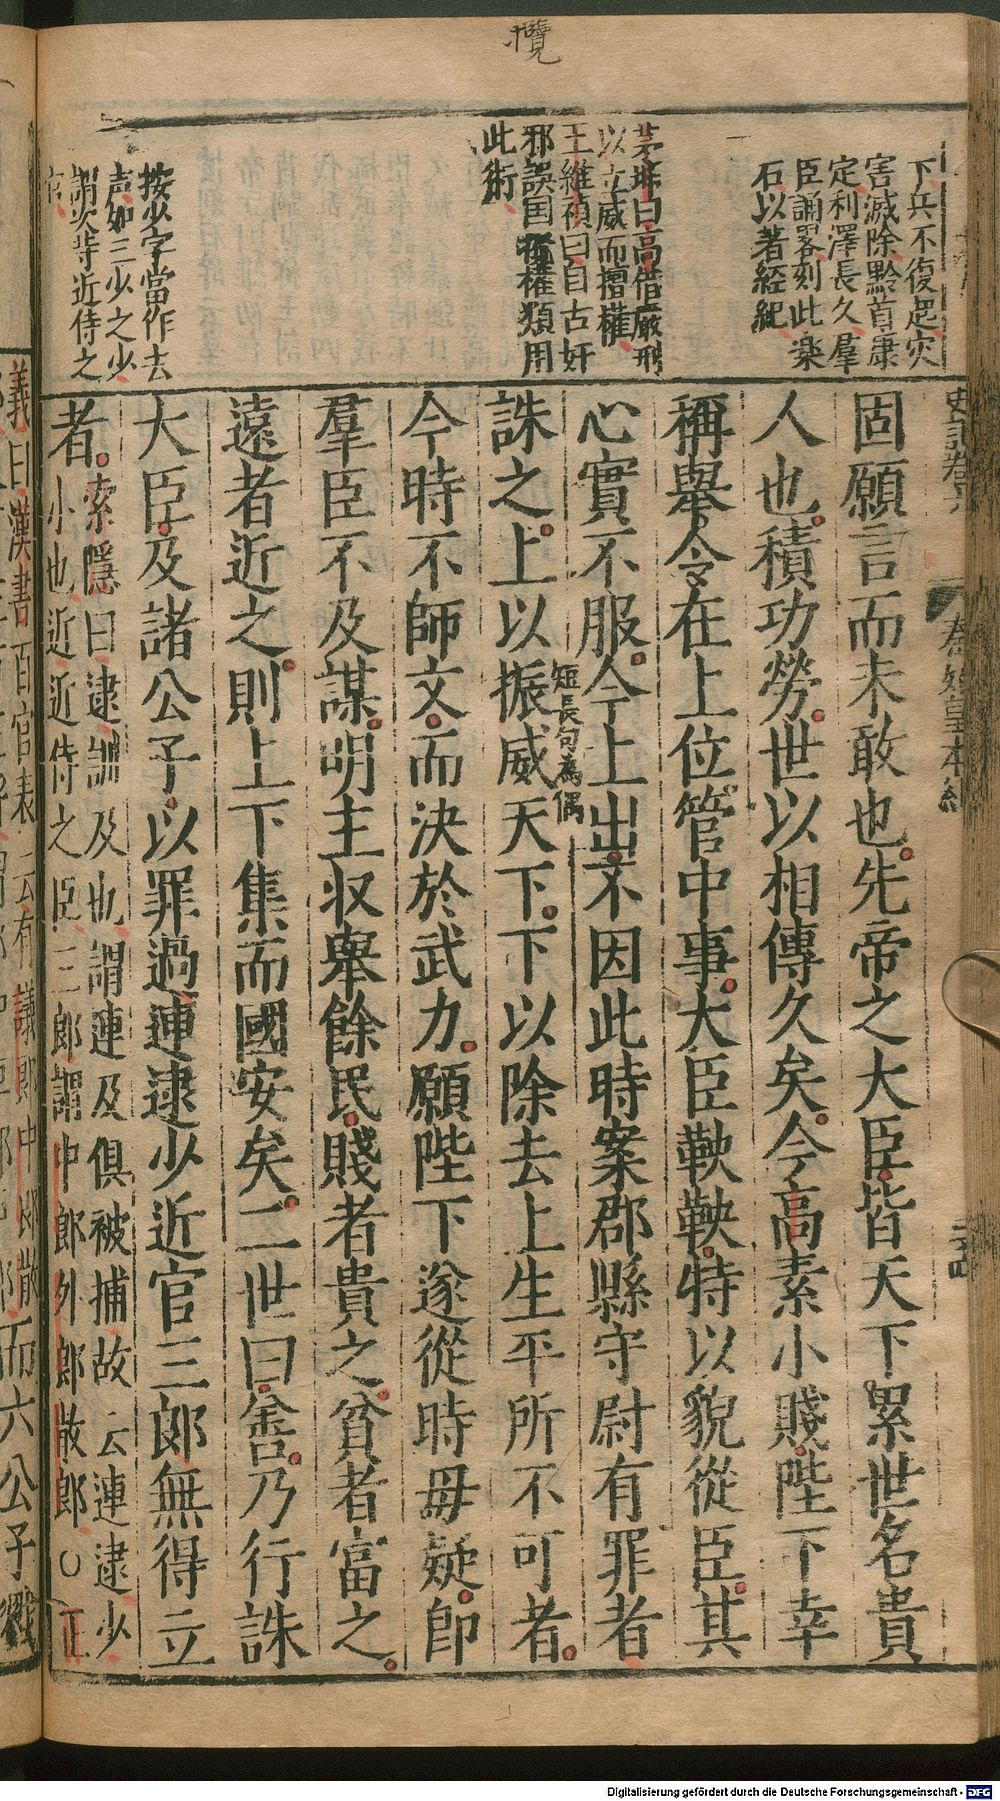 攬
下兵不復起災
害滅除黔首康
定利澤長久羣
臣誦畧刻此樂
石以著經紀
茅坤曰高借嚴刑
以立威而擅權
王維禎曰自古奸
邪誤国擅權類用
此術
按少字當作去
声如三少之少
謂次等近侍之
官
固願言而未敢也先帝之大臣皆天下累世名貴
人也積功勞世以相傳久矣今高素小賤陛下幸
稱舉令在上位管中事大臣鞅鞅特以貌從臣其
心實不服今上出不因此時案郡縣守尉有罪者
短長句為偶
誅之上以振威天下下以除去上生平所不可者
今時不師文而決於武力願陛下遂從時毋疑卽
羣臣不及謀明主収舉餘民賤者貴之貧者富之
遠者近之則上下集而國安矣二世曰善乃行誅
大臣及諸公子以罪過連逮少近官三郎無得立
者索隱曰逮訓及也謂連及俱被捕故云連逮少
小也近近侍之臣三郎謂中郎外郎散郎○正
義曰漢書百官表云有議郎中郎散
而六公子戮
史記卷六
秦始皇本紀
Digitalisierung gefördert durch die Deutsche Forschungsgemeinschaft - DFG